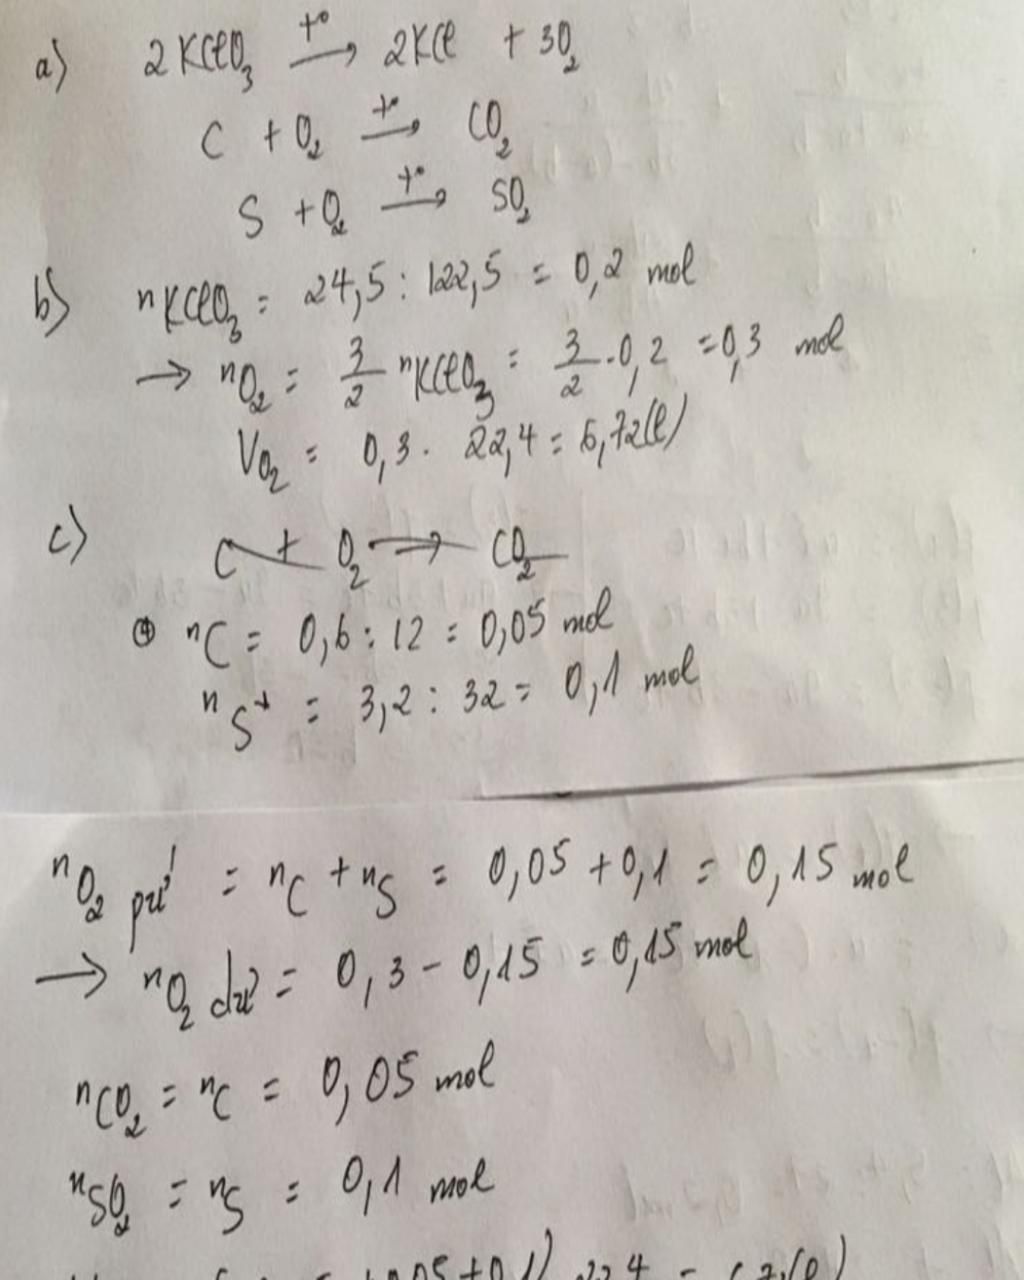 a) 2KClO₃ →(t°) 2KCl + 3O₂
C + O₂ →(t°) CO₂
S + O₂ →(t°) SO₂
b) nKClO₃ = 24,5 : 122,5 = 0,2 mol
→ nO₂ = 3/2 nKClO₃ = 3/2 . 0,2 = 0,3 mol
VO₂ = 0,3 . 22,4 = 6,72(l)
c) C + O₂ → CO₂
nC = 0,6 : 12 = 0,05 mol
nS = 3,2 : 32 = 0,1 mol
nO₂ pư = nC + nS = 0,05 + 0,1 = 0,15 mol
→ nO₂ dư = 0,3 - 0,15 = 0,15 mol
nCO₂ = nC = 0,05 mol
nSO₂ = nS = 0,1 mol